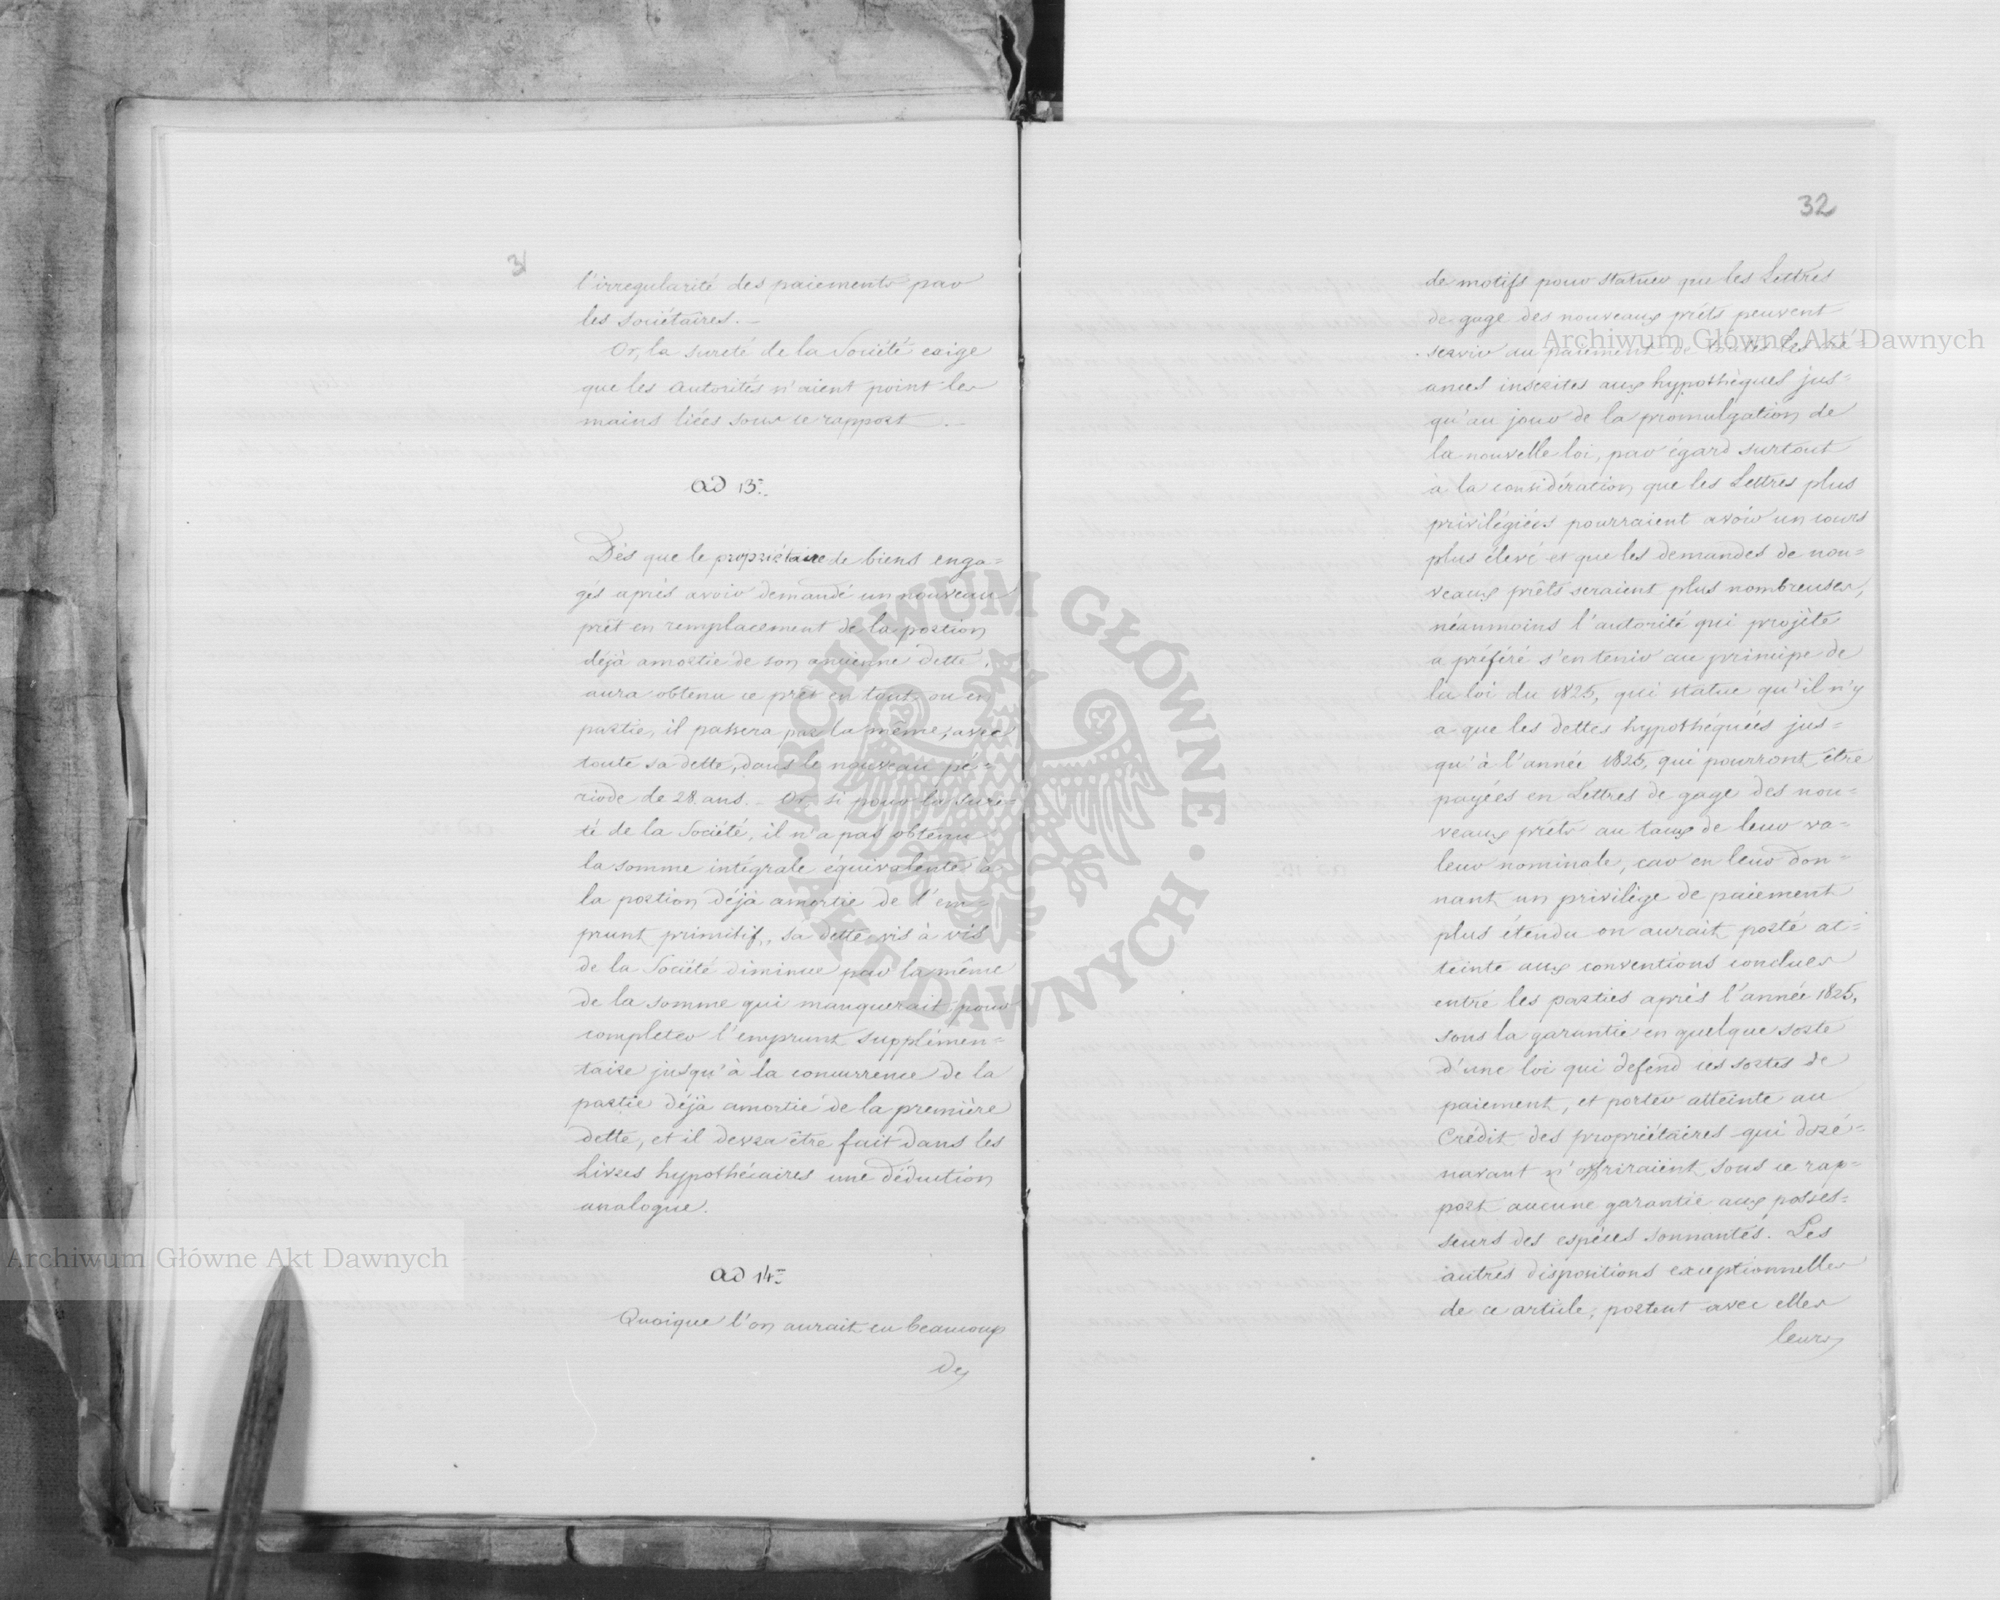 31
l'irregularité des paiements par
les sociétaires. —
Or, la sureté de la Société exige
que les autorités n'aient point les
mains liées sous ce rapport. —
ad 13.
Dès que le propriétaire de biens enga=
gés après avoir demandé un nouveau
prêt en remplacement de la portion
déjà amortie de son ancienne dette,
aura obtenu ce prêt en tout ou en
partie, il passera par la même, avec
toute sa dette, dans le nouveau pé=
riode de 28 ans. — Or, si pour la sure=
té de la Société, il n'a pas obtenu
la somme intégrale équivalente à
la portion déjà amortie de l'em=
prunt primitif, sa dette vis à vis
de la Société diminue par la même
de la somme qui manquerait pour
completer l'emprunt supplémen=
taire jusqu'à la concurrence de la
partie déjà amortie de la première
dette, et il devra être fait dans les
Livres hypothécaires une déduction
analogue.
ad 14.
Quoique l'on aurait eu beaucoup
de
32
de motifs pour statuer que les Lettres
de gage des nouveaux prêts peuvent
servir au paiement de toutes les cré=
ances inscrites aux hypothèques jus=
qu'au jour de la promulgation de
la nouvelle loi, par égard surtout
à la considération que les Lettres plus
privilégiées pourraient avoir un cours
plus élevé et que les demandes de nou=
veaux prêts seraient plus nombreuses,
néanmoins l'autorité qui projète
a préféré s'en tenir au principe de
la loi du 1825, qui statue qu'il n'y
a que les dettes hypothéquées jus=
qu'à l'année 1825, qui pourront être
payées en Lettres de gage des nou=
veaux prêts au taux de leur va=
leur nominale, car en leur don=
nant un privilège de paiement
plus étendu on aurait porté at=
teinte aux conventions conclues
entre les parties après l'année 1825,
sous la garantie en quelque sorte
d'une loi qui défend ces sortes de
paiement, et porter atteinte au
Crédit des propriétaires qui doré=
navant n'offriraient sous ce rap=
port aucune garantie aux posses=
seurs des espèces sonnantes. Les
autres dispositions exceptionnelles
de ce article, portent avec elles
leurs
Archiwum Główne Akt Dawnych
Archiwum Główne Akt Dawnych
ARCHIWUM GŁÓWNE · AKT DAWNYCH ·